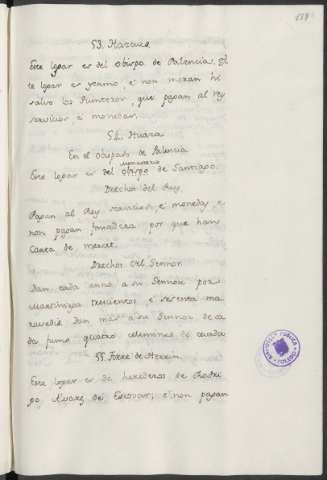 53. Hazaña
Este logar es del obispo de Palencia. Es
te logar es yermo, e non moran hi
salvo los que pagan al rey
servicios, e monedas.
54.
En el obispado de Palencia
Este logar es del obispo de Santiago.
Drechos del Rey
Pagan al Rey servicios, e monedas, e
non pagan fonsadera por que han
Carta de merce.
Drechos del Sennor
Dan cada anno a su Sennor por
martiniega trescientos, e sesenta ma
ravedis Dan mas a su Sennor de ca
da fumo quatro celemines de cevada
55. Torre de
Este logar es de herederos de Rodri
go Alvarez de Escovar; e non pagan